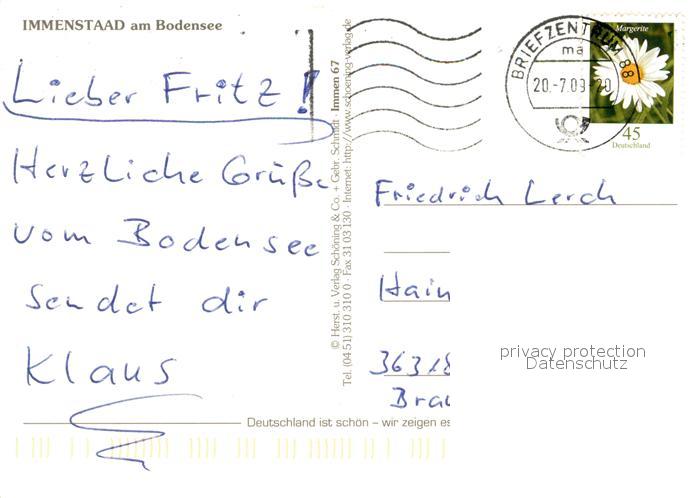 IMMENSTAAD am Bodensee
Lieber Fritz!
Herzliche Grüße
vom Bodensee
sendet dir
Klaus
© Herst. u. Verlag Schöning & Co. + Gebr. Schmidt · Immen 67
Tel. (04 51) 310 310 0 · Fax 31 03 130 · Internet: http://www.schoening-verlag.de
BRIEFZENTRUM 88
ma
20.-7.09-20
Margerite
45
Deutschland
Friedrich Lerch
Hain
36318
Brau
privacy protection
Datenschutz
Deutschland ist schön – wir zeigen es